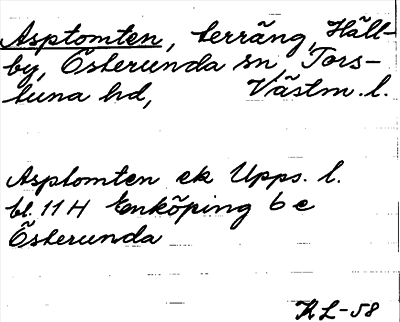 Asptomten, terräng, Häll-
by, Österunda sn, Tors-
tuna hd, Västm. l.
Asptomten ek Upps. l.
bl. 11 H Enköping 6 e
Österunda
KL-58